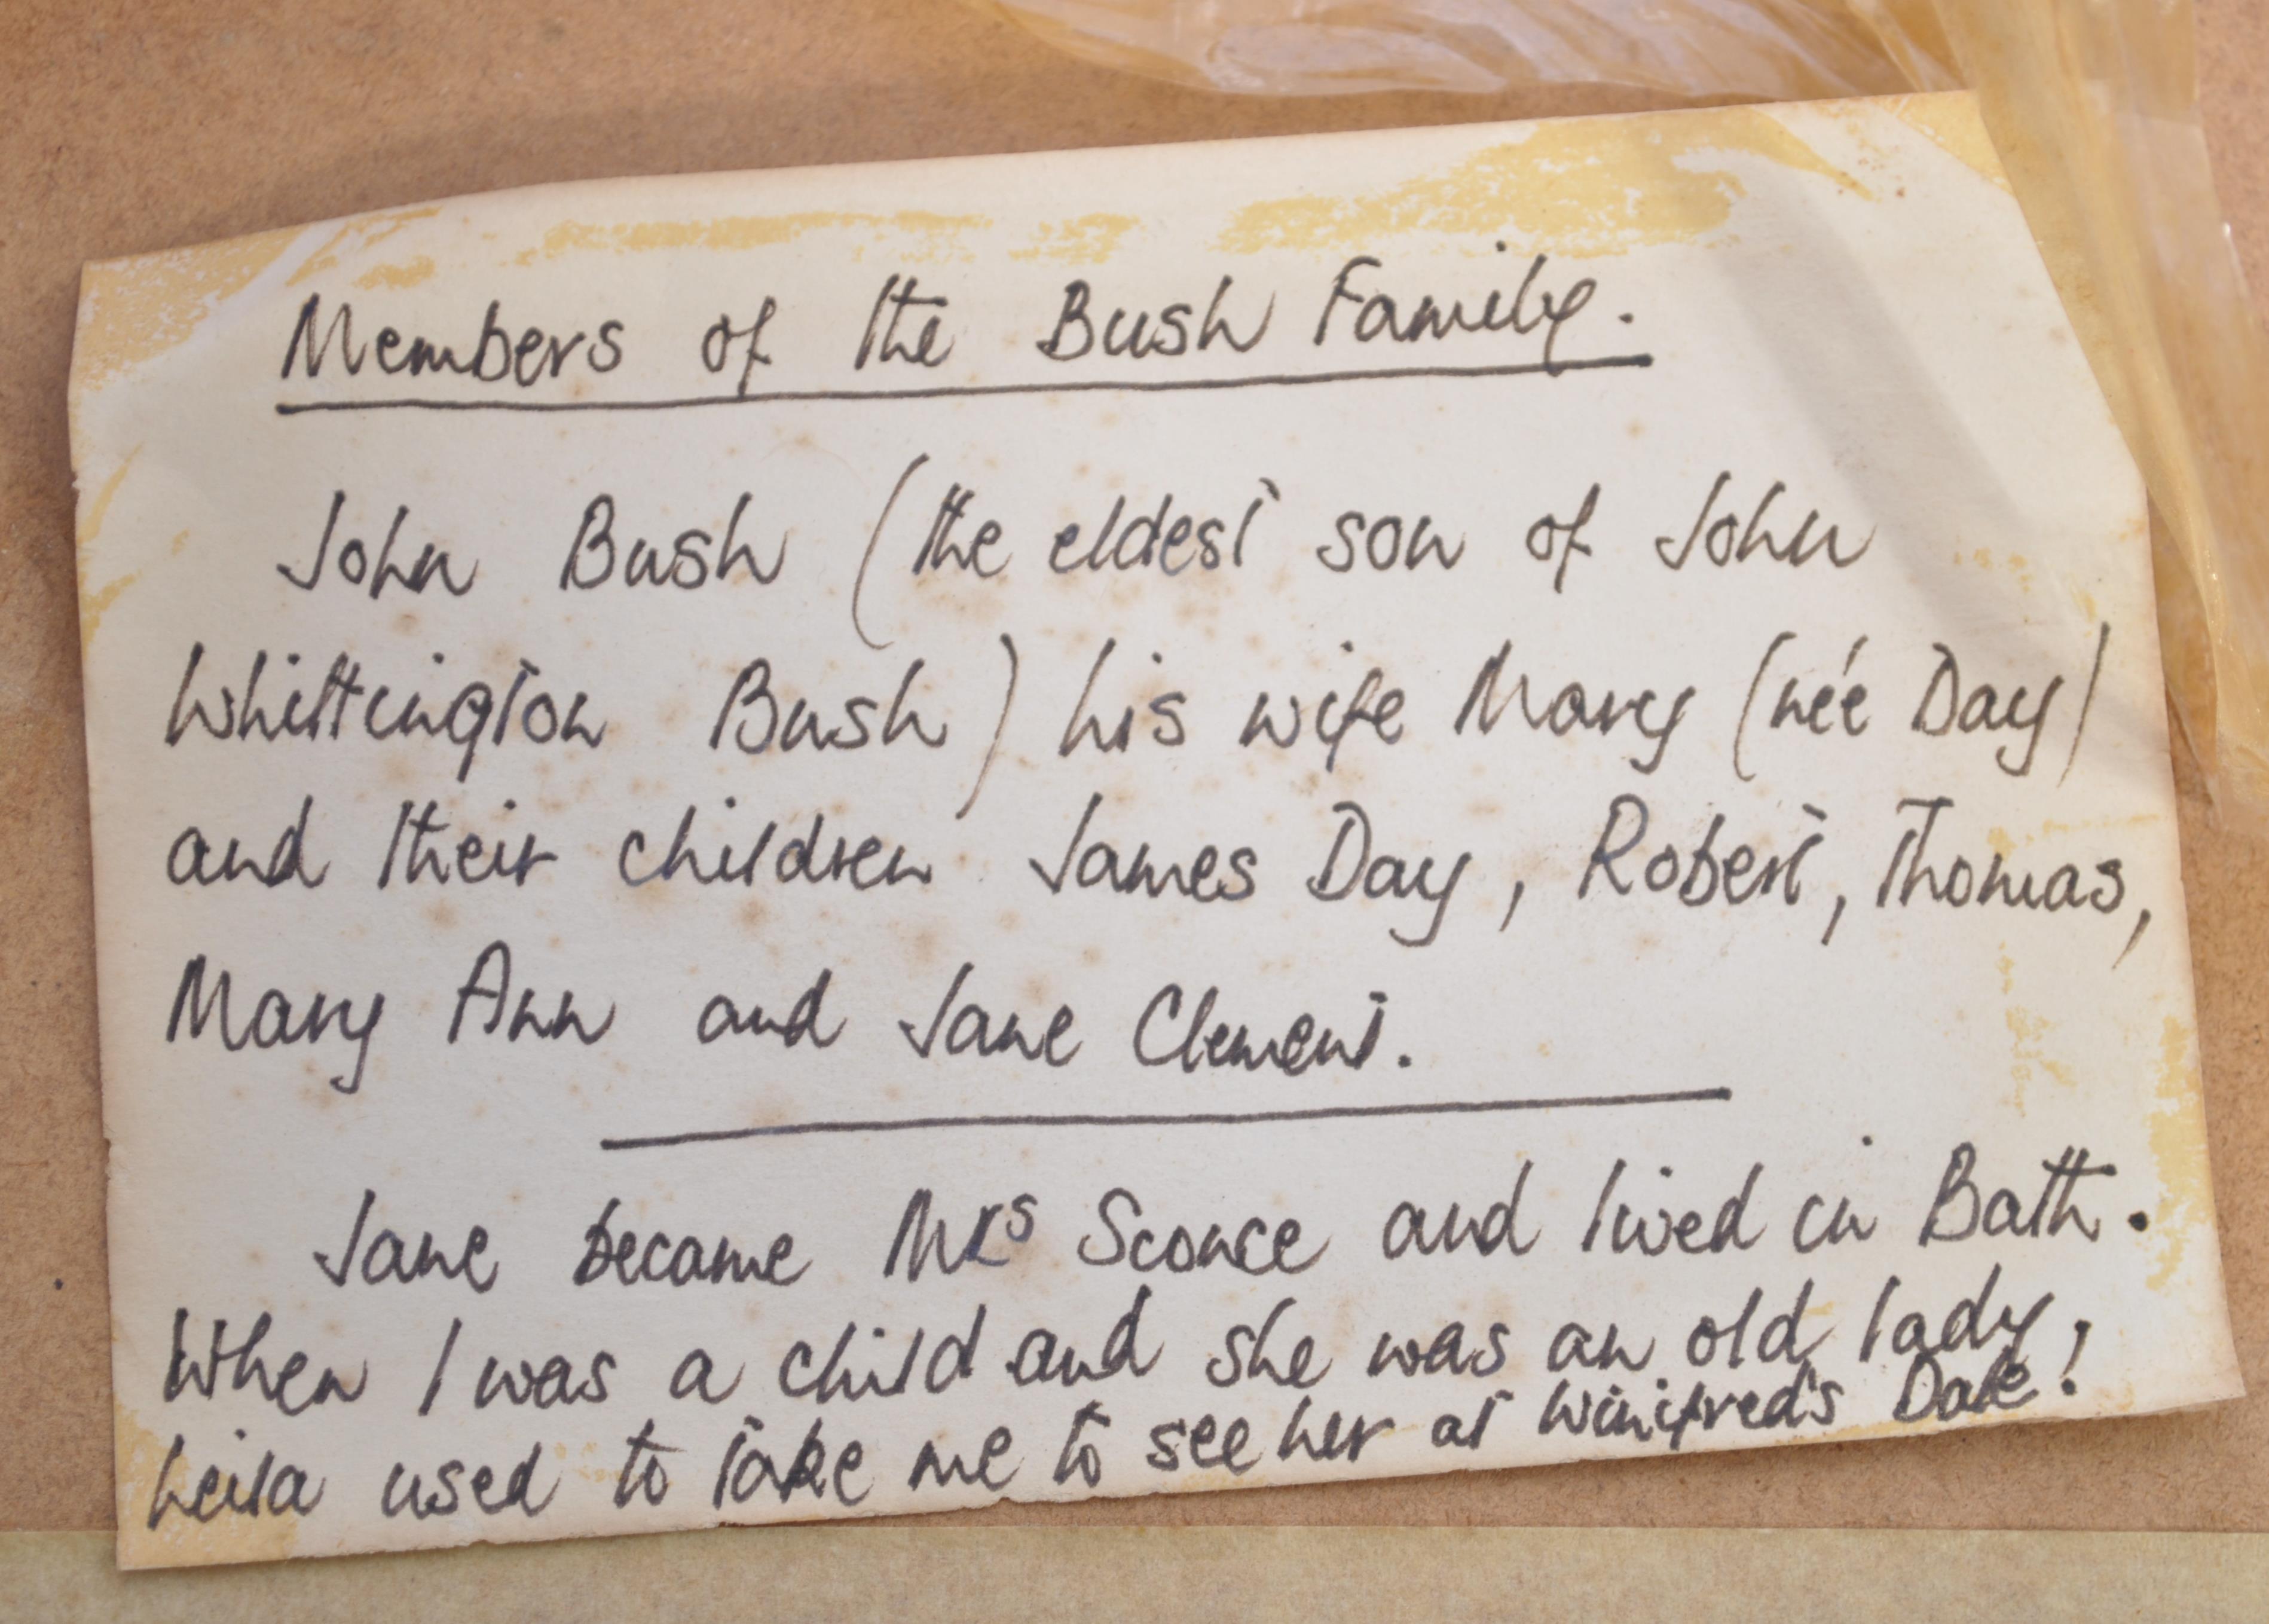 Members of the Bush Family.
John Bush (the eldest son of John
Whittington Bush) his wife Mary (née Day)
and their children James Day, Robert, Thomas,
Mary Ann and Jane Clement.
Jane became Mrs Sconce and lived in Bath.
When I was a child and she was an old lady,
Leila used to take me to see her at Winifred's Dale!